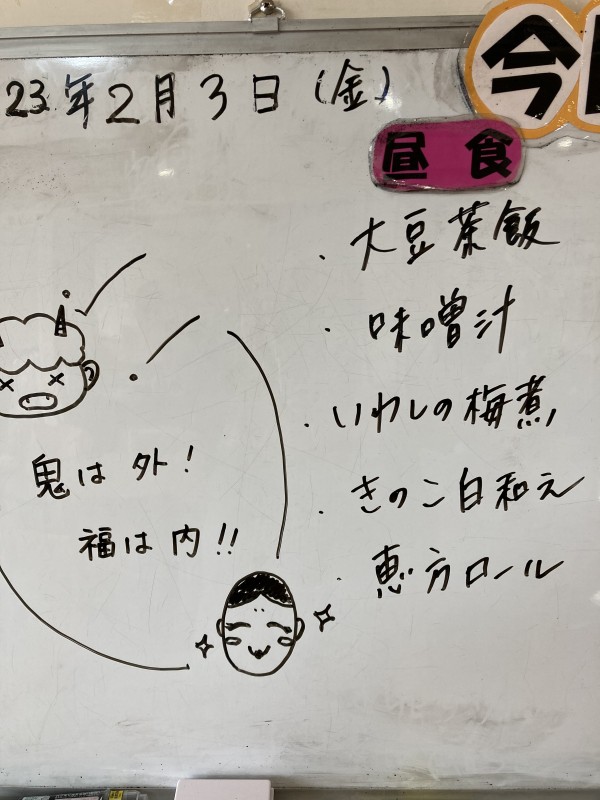 23年2月3日(金)
今
昼食
・大豆茶飯
・味噌汁
・いわしの梅煮
・きのこ白和え
・恵方ロール
鬼は外!
福は内!!